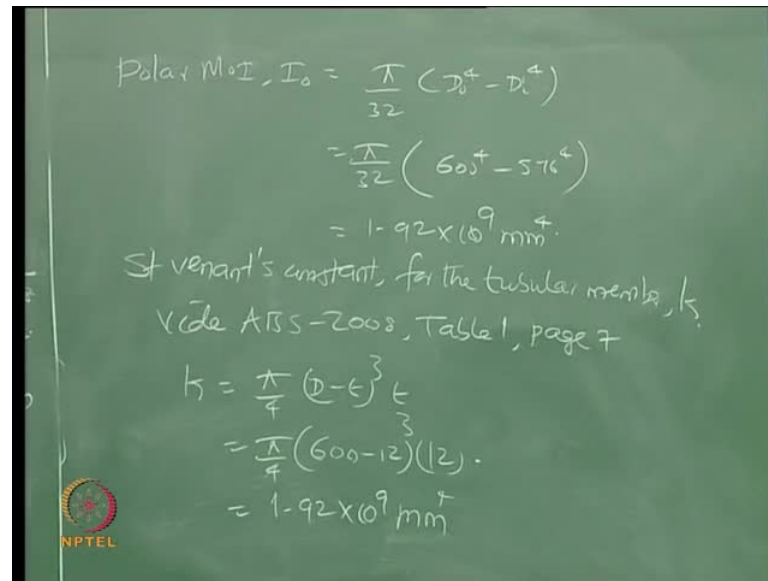 Polar MoI, I₀ = π/32 (D₀⁴ - Dᵢ⁴)
= π/32 (600⁴ - 576⁴)
= 1.92 × 10⁹ mm⁴.
St venant's constant, for the tubular member, k,
vide ABS-2008, Table 1, page 7
k = π/4 (D-t)³ t
= π/4 (600-12)³ (12).
= 1.92 × 10⁹ mm⁴
NPTEL